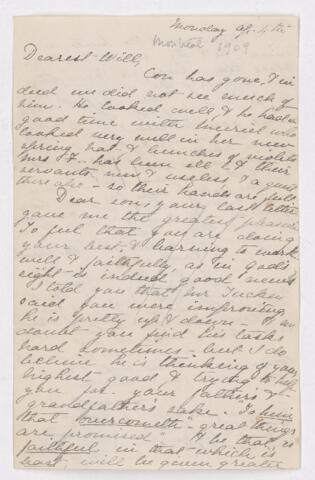 Monday Ap. 4th
Montreal 1909
Dearest Will,
Con has gone, & in
deed we did not see much of
him. He looked well, & he had a
good time with Muriel who
looked very well in her new
spring hat & bunches of violets
Mrs F. has been ill & their
servants new & useless & a
there also - so their hands are full.
Dear son, your last letter
gave me the greatest pleasure
To feel that you are doing
your best, & learning to work
well & faithfully, as in God's
sight is indeed good news.
I told you that Mr Tucker
said you were improving
he is pretty up & down - & no
doubt you find his tasks
hard sometimes - but I do
believe he is thinking of your
highest good & trying to help
you for your father's &
grandfather's sake. To him
that overcometh - great things
are promised "& he that is
faithful in that which is
least, will be given greater